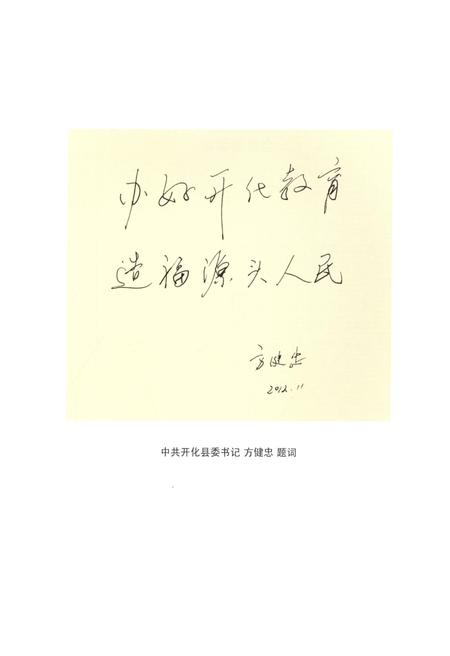 办好开化教育
造福源头人民
方健忠
2012.11
中共开化县委书记 方健忠 题词